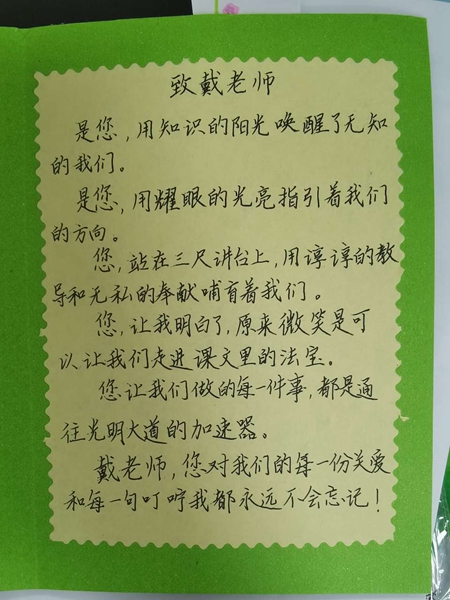 致戴老师
是您，用知识的阳光唤醒了无知
的我们。
是您，用耀眼的光亮指引着我们
的方向。
您，站在三尺讲台上，用谆谆的教
导和无私的奉献哺育着我们。
您，让我明白了，原来微笑是可
以让我们走进课文里的法宝。
您让我们做的每一件事，都是通
往光明大道的加速器。
戴老师，您对我们的每一份关爱
和每一句叮咛我都永远不会忘记！